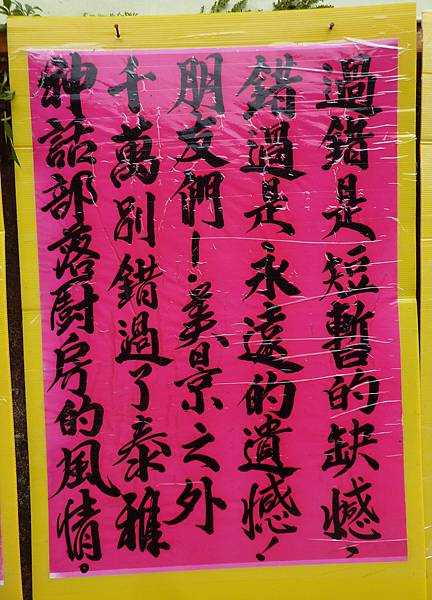 過錯是短暫的缺憾、
錯過是永遠的遺憾！
朋友們！美景之外
千萬別錯過了泰雅
神話部落厨房的風情。